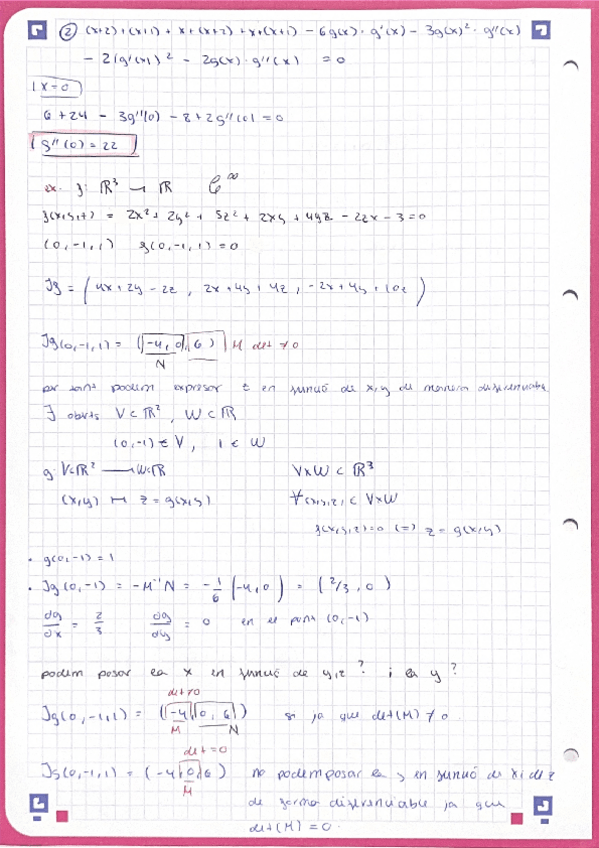 ② (x+2)+(x+1) + x+(x+2) + x+(x+1) - 6g(x)·g'(x) - 3g(x)²·g''(x)
- 2(g'(x))² - 2g(x)·g''(x) = 0
x=0
6+24 - 3g''(0) - 8+2g''(0) = 0
g''(0) = 22
ex. f: ℝ³ → ℝ C^∞
f(x,y,z) = 2x² + 2y² + 5z² + 2xy + 4yz - 2zx - 3 = 0
(0,-1,1) f(0,-1,1) = 0
Jf = (4x+2y-2z, 2x+4y+4z, -2x+4y+10z)
Jf(0,-1,1) = (-4,0,6) M det ≠0
N
per tant podem expresar z en funció de x,y de manera diferenciable
∃ oberts V⊂ℝ², W⊂ℝ
(0,-1) ∈ V, 1 ∈ W
g: V⊂ℝ² → W⊂ℝ V×W ⊂ ℝ³
(x,y) ↦ z = g(x,y) ∀(x,y,z) ⊂ V×W
f(x,y,z)=0 (=) z = g(x,y)
• g(0,-1) = 1
• Jg(0,-1) = -M⁻¹N = -1/6 (-4,0) = (2/3, 0)
∂g/∂x = 2/3 ∂g/∂y = 0 en el punt (0,-1)
podem posar la x en funció de y,z? i la y?
det≠0
Jf(0,-1,1) = (-4,0,6) si ja que det(M) ≠ 0
M N
det=0
Jf(0,-1,1) = (-4,0,6) no podem posar la y en funció de x i de z
M
de forma diferenciable ja que
det(M) = 0.